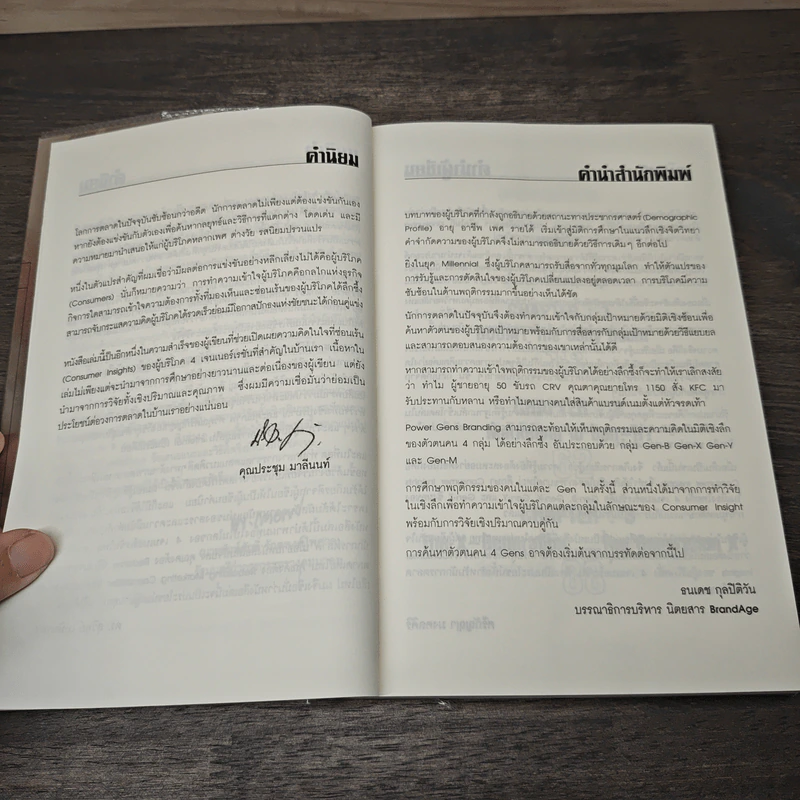 คำนิยม
โลกการตลาดในปัจจุบันซับซ้อนกว่าอดีต นักการตลาดไม่เพียงแต่ต้องแข่งขันกันเอง
หากยังต้องแข่งขันกับตัวเองเพื่อค้นหากลยุทธ์และวิธีการที่แตกต่าง โดดเด่น และมี
ความหมายมานำเสนอให้แก่ผู้บริโภคหลากเพศ ต่างวัย รสนิยมปรวนแปร
หนึ่งในตัวแปรสำคัญที่ผมเชื่อว่ามีผลต่อการแข่งขันอย่างหลีกเลี่ยงไม่ได้คือผู้บริโภค
(Consumers) นั่นก็หมายความว่า การทำความเข้าใจผู้บริโภคคือกลไกแห่งธุรกิจ
กิจการใดสามารถเข้าใจความต้องการทั้งที่มองเห็นและซ่อนเร้นของผู้บริโภคได้ลึกซึ้ง
สามารถจับกระแสความคิดผู้บริโภคได้รวดเร็วย่อมมีโอกาสปักธงแห่งชัยชนะได้ก่อนคู่แข่ง
หนังสือเล่มนี้เป็นอีกหนึ่งในความสำเร็จของผู้เขียนที่ช่วยเปิดเผยความคิดในใจที่ซ่อนเร้น
(Consumer Insights) ของผู้บริโภค 4 เจนเนอร์เรชั่นที่สำคัญในบ้านเรา เนื้อหาใน
เล่มไม่เพียงแต่จะนำมาจากการศึกษาอย่างยาวนานและต่อเนื่องของผู้เขียน แต่ยัง
นำมาจากการวิจัยทั้งเชิงปริมาณและคุณภาพ ซึ่งผมมีความเชื่อมั่นว่าย่อมเป็น
ประโยชน์ต่อวงการตลาดในบ้านเราอย่างแน่นอน
คุณประชุม มาลีนนท์
คำนำสำนักพิมพ์
บทบาทของผู้บริโภคที่กำลังถูกอธิบายด้วยสถานะทางประชากรศาสตร์ (Demographic
Profile) อายุ อาชีพ เพศ รายได้ เริ่มเข้าสู่มิติการศึกษาในแนวลึกเชิงจิตวิทยา
คำจำกัดความของผู้บริโภคจึงไม่สามารถอธิบายด้วยวิธีการเดิมๆ อีกต่อไป
ยิ่งในยุค Millennial ซึ่งผู้บริโภคสามารถรับสื่อจากทั่วทุกมุมโลก ทำให้ตัวแปรของ
การรับรู้และการตัดสินใจของผู้บริโภคเปลี่ยนแปลงอยู่ตลอดเวลา การบริโภคมีความ
ซับซ้อนในด้านพฤติกรรมมากขึ้นอย่างเห็นได้ชัด
นักการตลาดในปัจจุบันจึงต้องทำความเข้าใจกับกลุ่มเป้าหมายด้วยมิติเชิงซ้อนเพื่อ
ค้นหาตัวตนของผู้บริโภคเป้าหมายพร้อมกับการสื่อสารกับกลุ่มเป้าหมายด้วยวิธีแยบยล
และสามารถตอบสนองความต้องการของเขาเหล่านั้นได้ดี
หากสามารถทำความเข้าใจพฤติกรรมของผู้บริโภคได้อย่างลึกซึ้งก็จะทำให้เราเลิกสงสัย
ว่า ทำไม ผู้ชายอายุ 50 ขับรถ CRV คุณตาคุณยายโทร 1150 สั่ง KFC มา
รับประทานกับหลาน หรือทำไมคนบางคนใส่สินค้าแบรนด์เนมตั้งแต่หัวจรดเท้า
Power Gens Branding สามารถสะท้อนให้เห็นพฤติกรรมและความคิดในมิติเชิงลึก
ของตัวตนคน 4 กลุ่ม ได้อย่างลึกซึ้ง อันประกอบด้วย กลุ่ม Gen-B Gen-X Gen-Y
และ Gen-M
การศึกษาพฤติกรรมของคนในแต่ละ Gen ในครั้งนี้ ส่วนหนึ่งได้มาจากการทำวิจัย
ในเชิงลึกเพื่อทำความเข้าใจผู้บริโภคแต่ละกลุ่มในลักษณะของ Consumer Insight
พร้อมกับการวิจัยเชิงปริมาณควบคู่กัน
การค้นหาตัวตนคน 4 Gens อาจต้องเริ่มต้นจากบรรทัดต่อจากนี้ไป
ธนเดช กุลปิติวัน
บรรณาธิการบริหาร นิตยสาร BrandAge